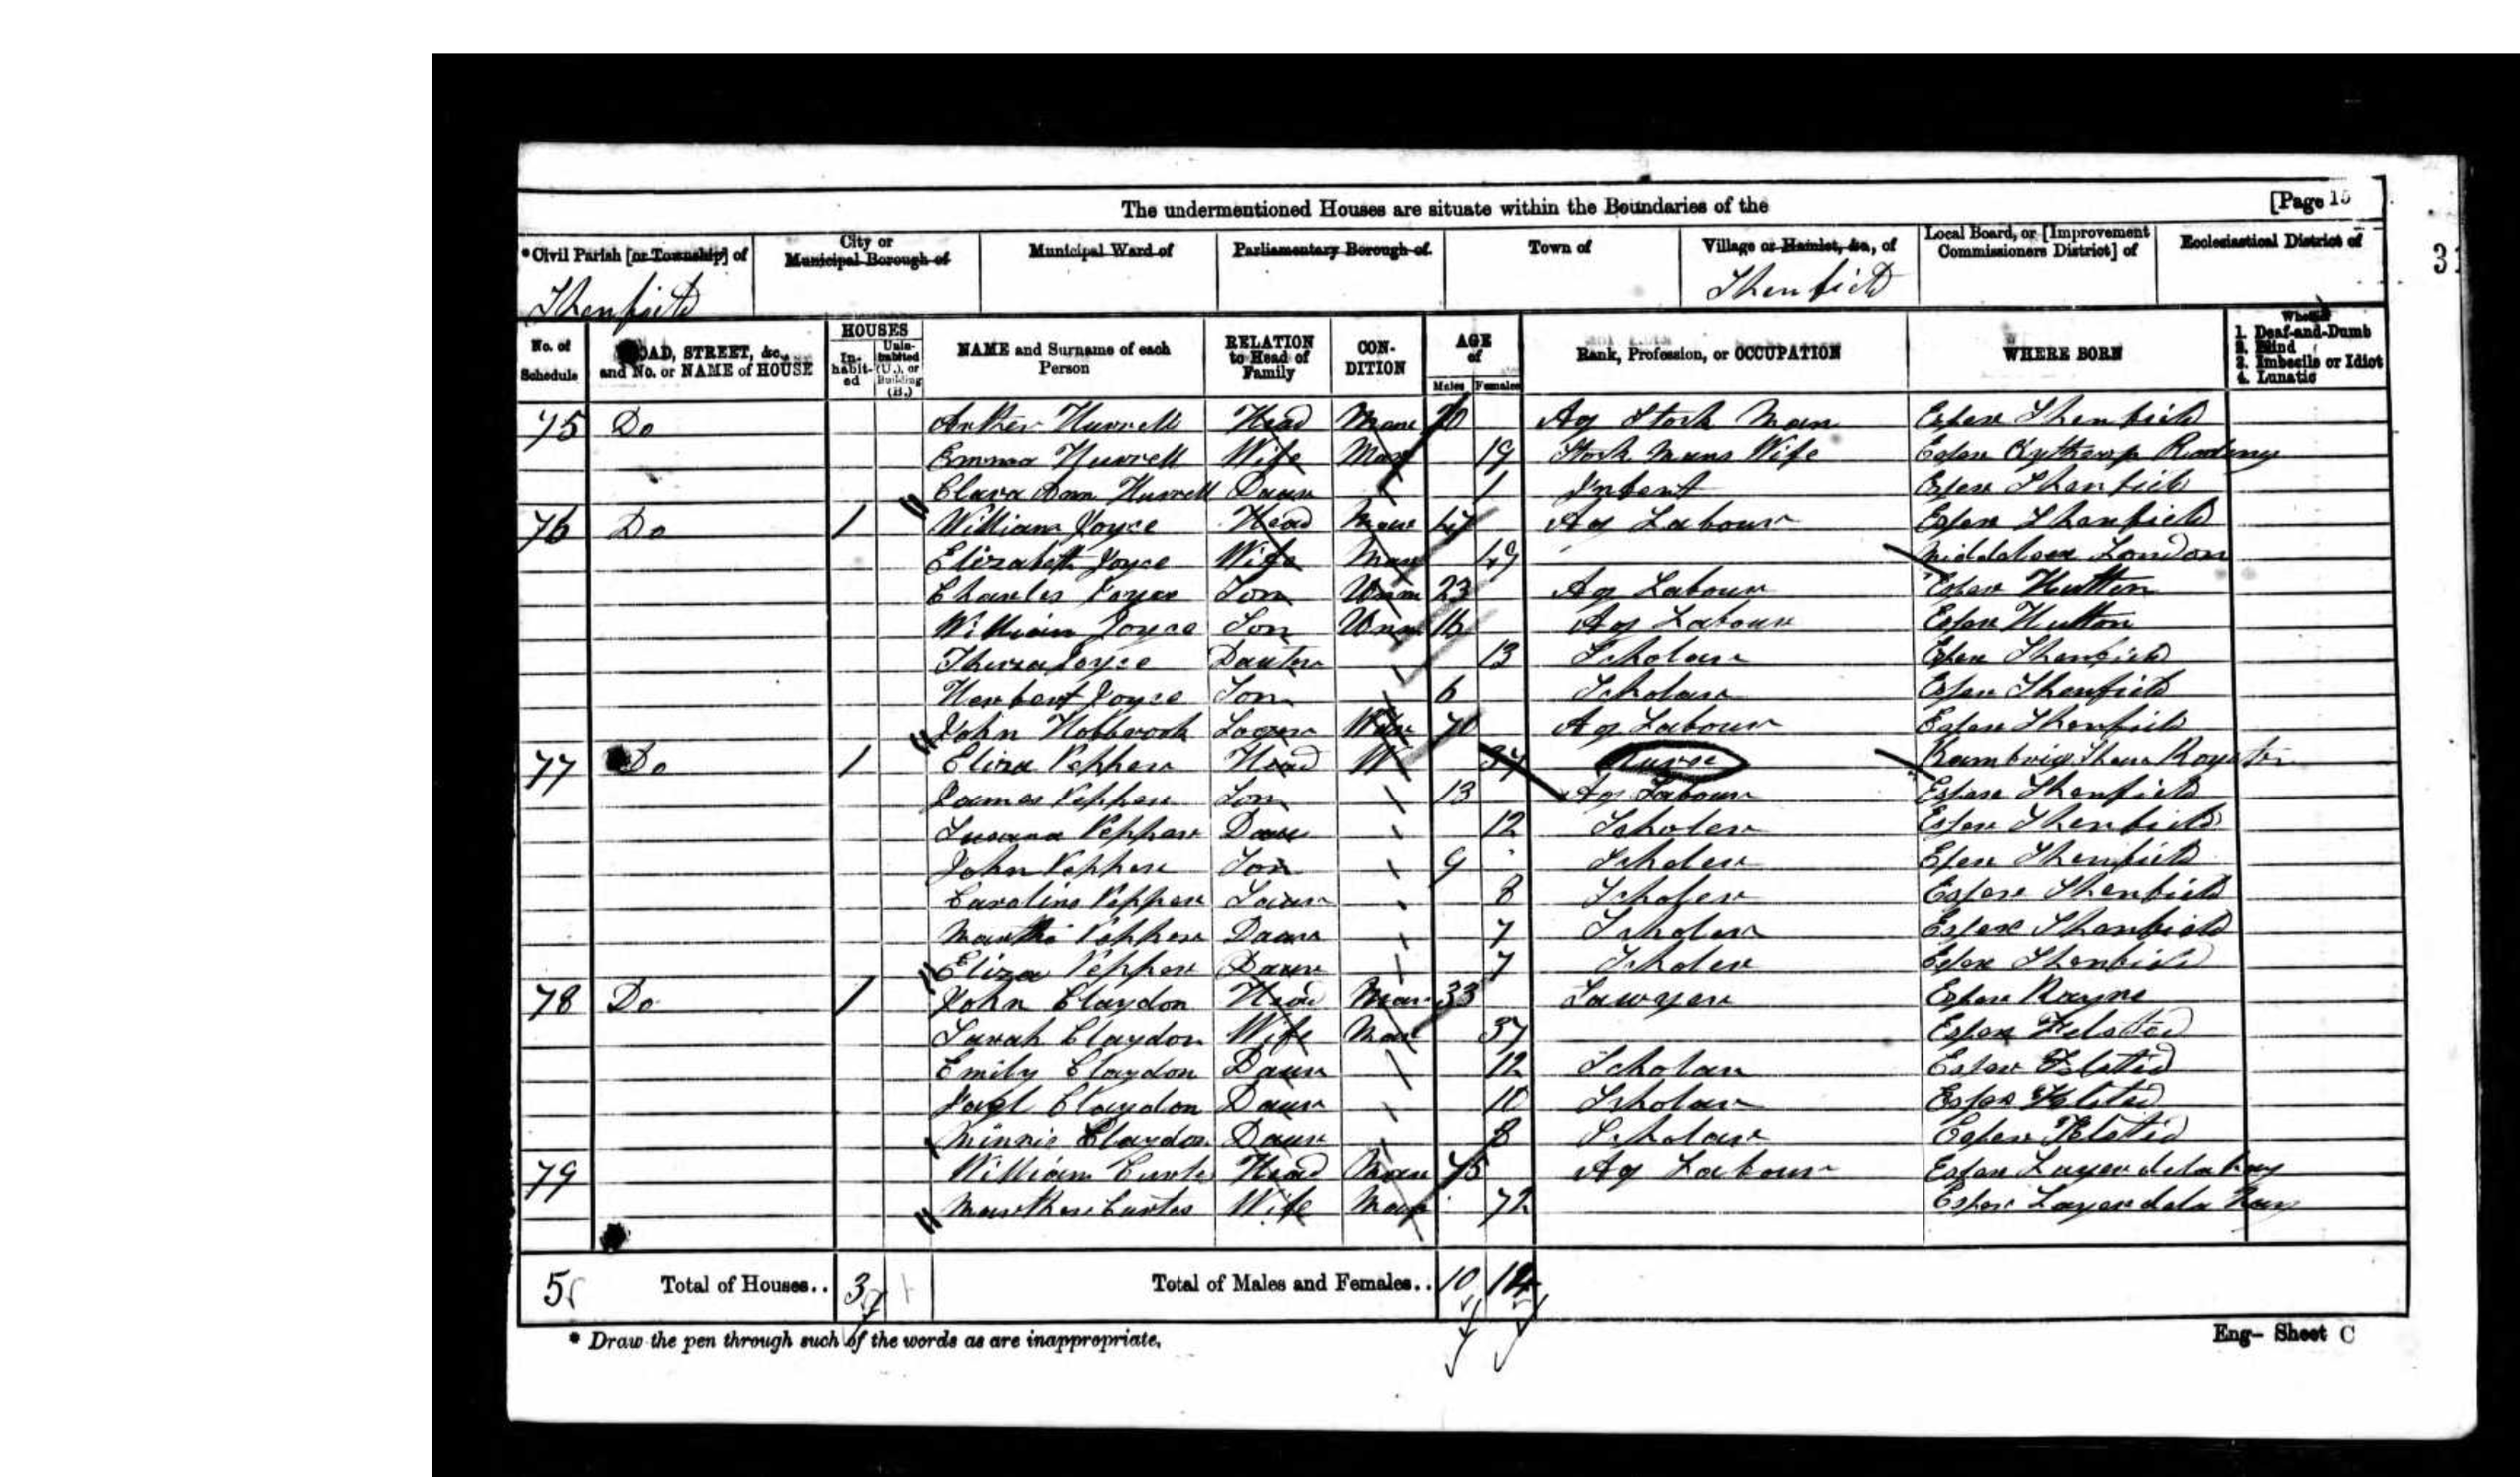 The undermentioned Houses are situate within the Boundaries of the [Page 15
*Civil Parish [or Township] of City or Municipal Borough of Municipal Ward of Parliamentary Borough of Town of Village or Hamlet, &c., of Local Board, or [Improvement Commissioners District] of Ecclesiastical District of
Shenfield Shenfield
31
No. of Schedule ROAD, STREET, &c., and No. or NAME of HOUSE HOUSES In-habit-ed Unin-habited (U.), or Building (B.) NAME and Surname of each Person RELATION to Head of Family CON-DITION AGE of Males Females Rank, Profession, or OCCUPATION WHERE BORN Whether 1. Deaf-and-Dumb 2. Blind 3. Imbecile or Idiot 4. Lunatic
75 Do Hurrell Head Marr 20 Ag Stock Man Essex Shenfield
Emma Hurrell Wife Mar 19 Stock Mans Wife Essex Roding
Clara Ann Hurrell Daur 1 Infent Essex Shenfield
76 Do 1 William Joyce Head Marr 47 Ag Labour Essex Shenfield
Elizabeth Joyce Wife Mar 49 Middelsex London
Charles Joyce Son Unm 23 Ag Labour Essex Hutton
William Joyce Son Unm 16 Ag Labour Essex Hutton
Joyce 13 Scholar Essex Shenfield
Herbert Joyce Son 6 Scholar Essex Shenfield
John 70 Ag Labour Essex Shenfield
77 Do 1 Eliza Pepper Head W 37 Nurse
James Pepper Son 13 Ag Labour Essex Shenfield
Pepper Daur 12 Scholer Essex Shenfield
John Pepper Son 9 Scholer Essex Shenfield
Caroline Pepper 8 Scholer Essex Shenfield
Martha Pepper Daur 7 Scholer Essex Shenfield
Eliza Pepper Daur 7 Scholer Essex Shenfield
78 Do 1 John Claydon Head Mar 33 Sawyer Essex Rayne
Sarah Claydon Wife Mar 37 Essex Felsted
Emily Claydon Daur 12 Scholar Essex Felsted
Claydon Daur 10 Scholar Essex Felsted
Minnie Claydon Daur 8 Scholar Essex Felsted
79 William Head Marr 75 Ag Labour Essex
Wife Mar 72 Essex
5 Total of Houses.. 3 Total of Males and Females.. 10 14
* Draw the pen through such of the words as are inappropriate. Eng– Sheet C